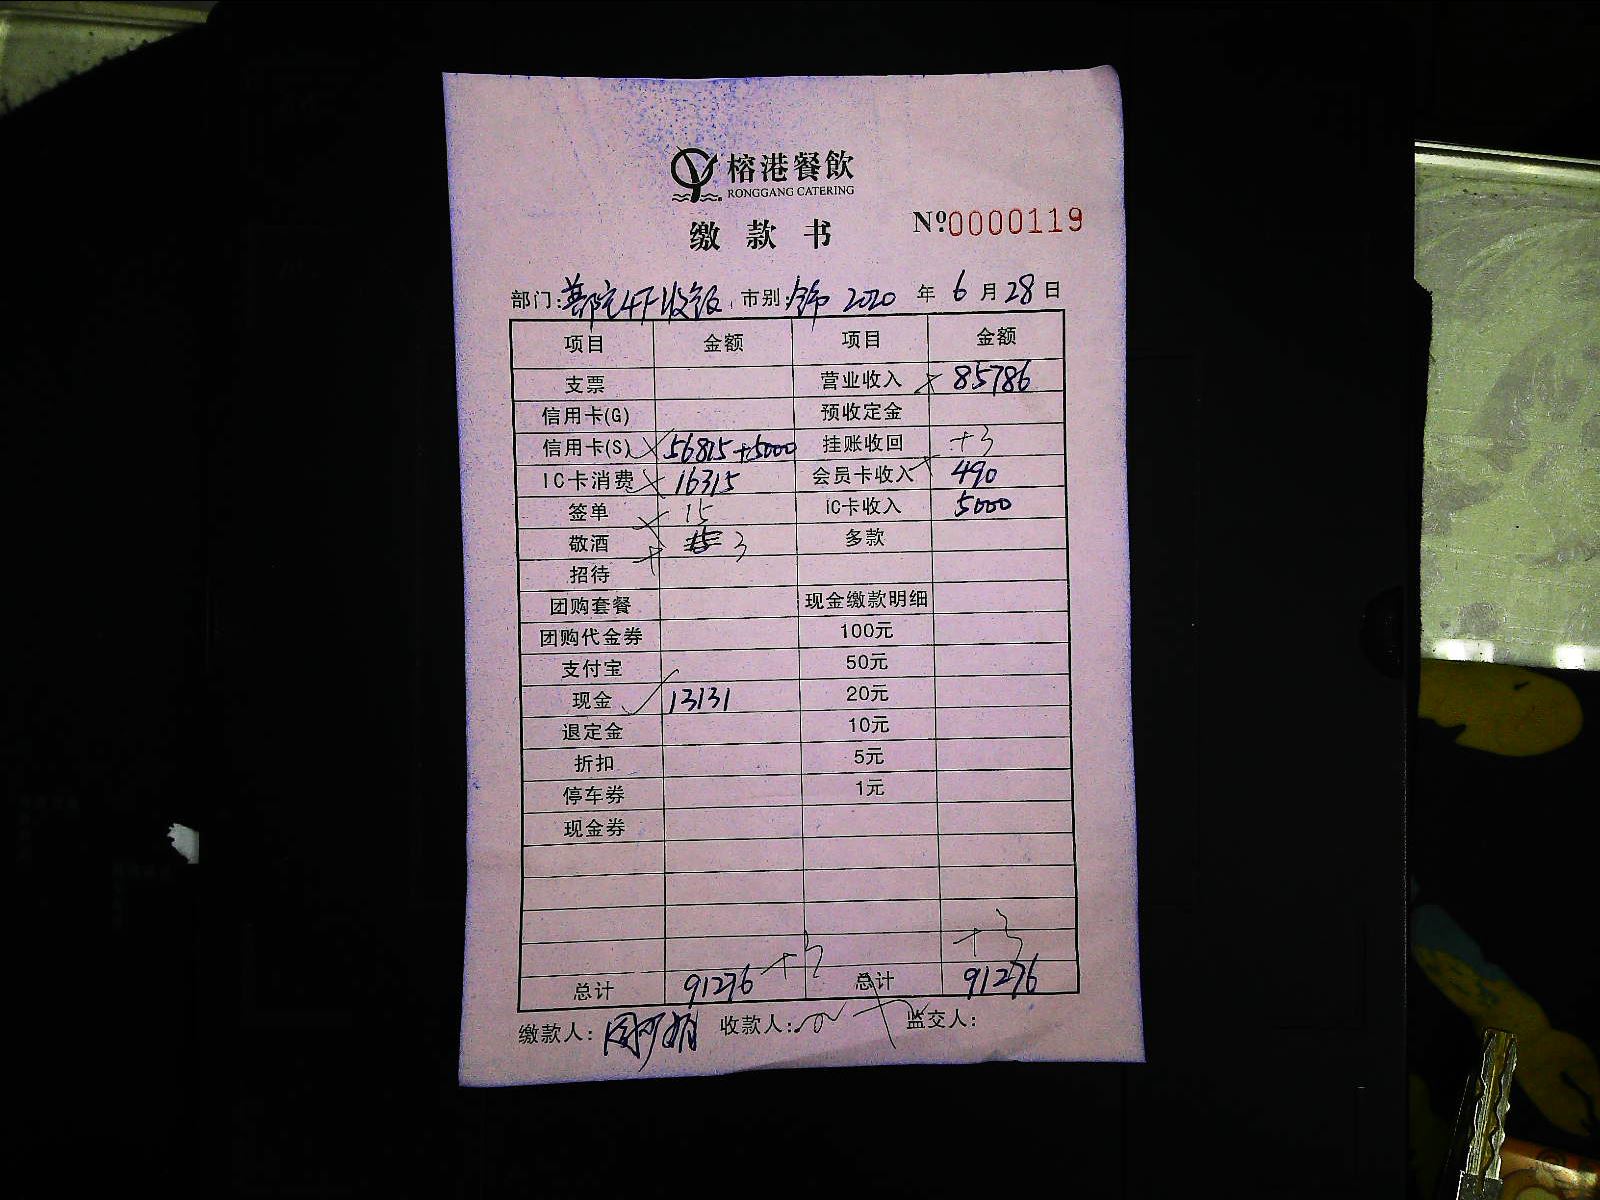 榕港餐飲
RONGGANG CATERING
缴款书 Nº.0000119
部门: 4F收银 市别: 2020 年 6 月 28 日
项目 金额 项目 金额
支票 营业收入 85786
信用卡(G) 预收定金
信用卡(S) 56815+5000 挂账收回 +3
IC卡消费 16315 会员卡收入 490
签单 15 IC卡收入 5000
敬酒 3 多款
招待
团购套餐 现金缴款明细
团购代金券 100元
支付宝 50元
现金 13131 20元
退定金 10元
折扣 5元
停车券 1元
现金券
+3 +3
总计 91276 总计 91276
缴款人: 收款人: 监交人: